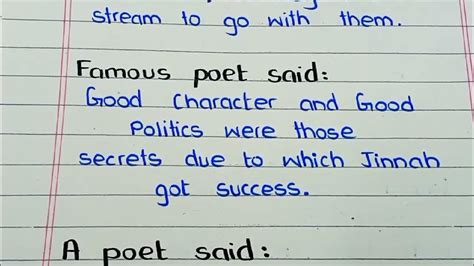 stream to go with them.
Famous poet said:
Good character and Good
Politics were those
secrets due to which Jinnah
got success.
A poet said: